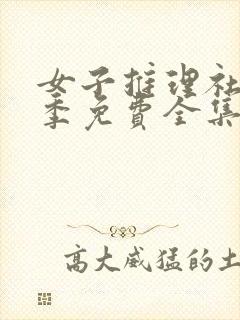 女子推理社
季免費全集
高大威猛的土